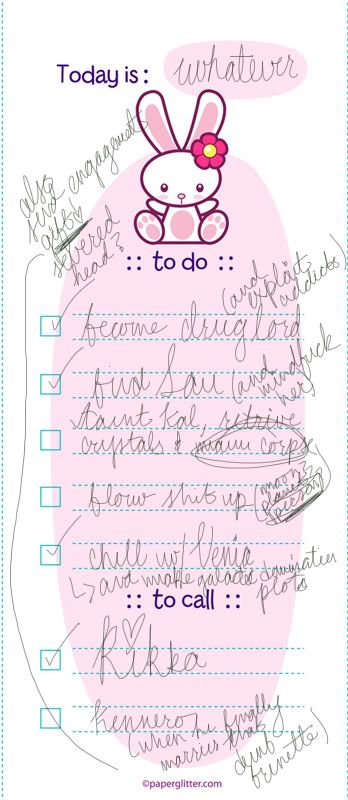 Today is: whatever
also
send engagement
gift
severed
head?
:: to do ::
become drug lord (and exploit addicts)
find Sau (and mindfuck her)
taunt Kal, retrive
crystals & miaiu corps
blow shit up (moons planets person)
chill w/ Venia
and make galactic domination plots
:: to call ::
Rikka
Kennero
(when he finally
marries that
dumb
brunette)
©paperglitter.com